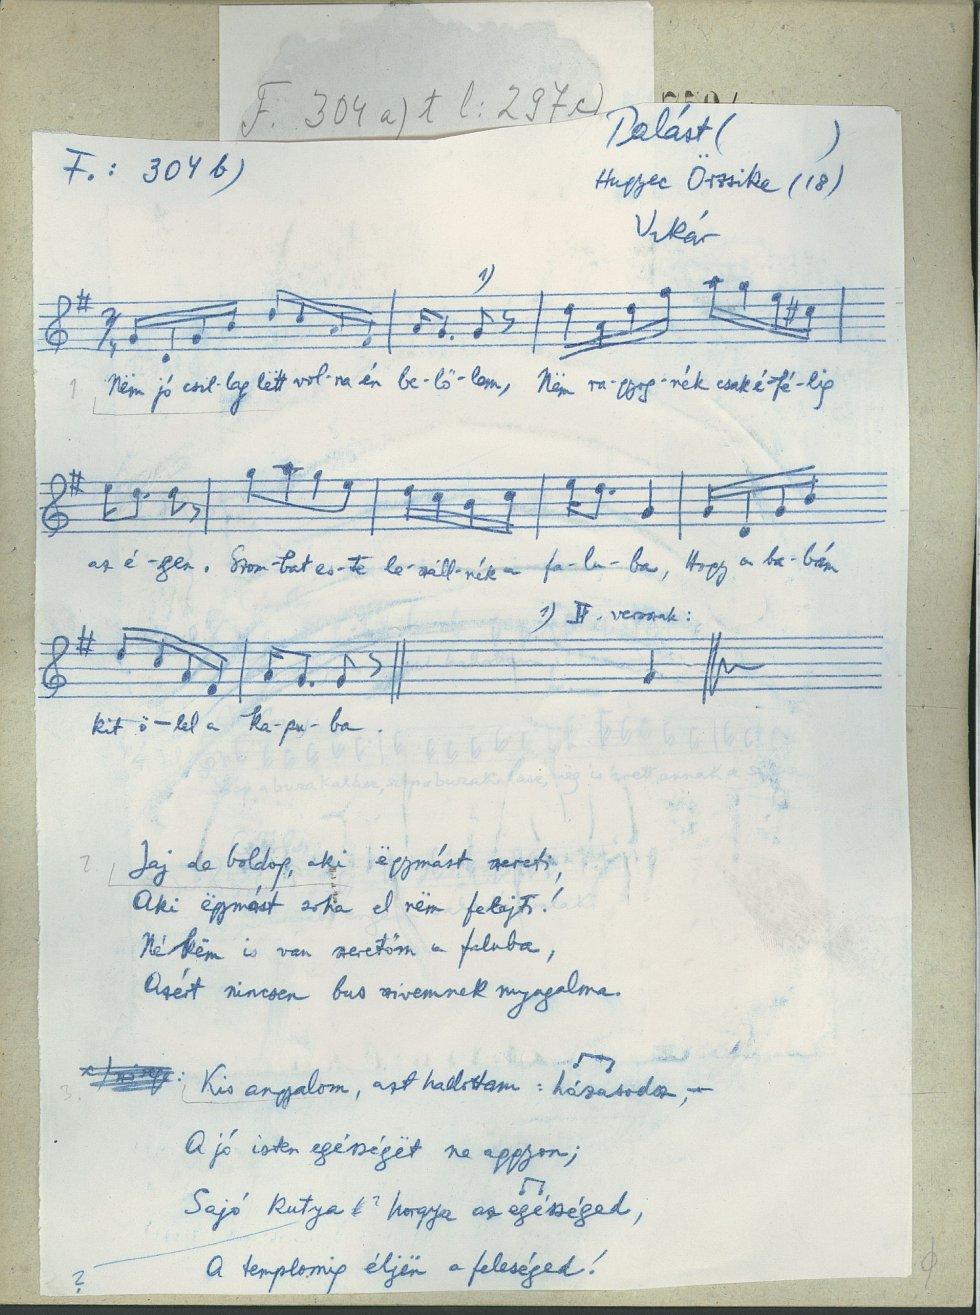 F. 304 a) t l: 297c)
F.: 304 b)
Palást ( )
Hugyec Örzsike (18)
Vikár
1)
2/4
1 Nëm jó csil-lag lëtt vol-na én be-lő-lem, Nëm ra-gyog-nék csak é-fé-lig
az é-gen. Szom-bat es-te le-száll-nék a fa-lu-ba, Hogy a ba-bám
1) IV. versszak:
kit ö-lel a ka-pu-ba.
2 Jaj de boldog, aki ëgymást szereti,
Aki ëgymást soha el nëm felejti!
Nékëm is van szeretőm a faluba,
Azért nincsen bus szivemnek nyugalma.
3. Kis angyalom, azt hallottam: házasodsz, –
A jó isten egésségët ne aggyon;
Sajó kutya ? horgya az egésséged,
? A templomig éljën a feleséged!